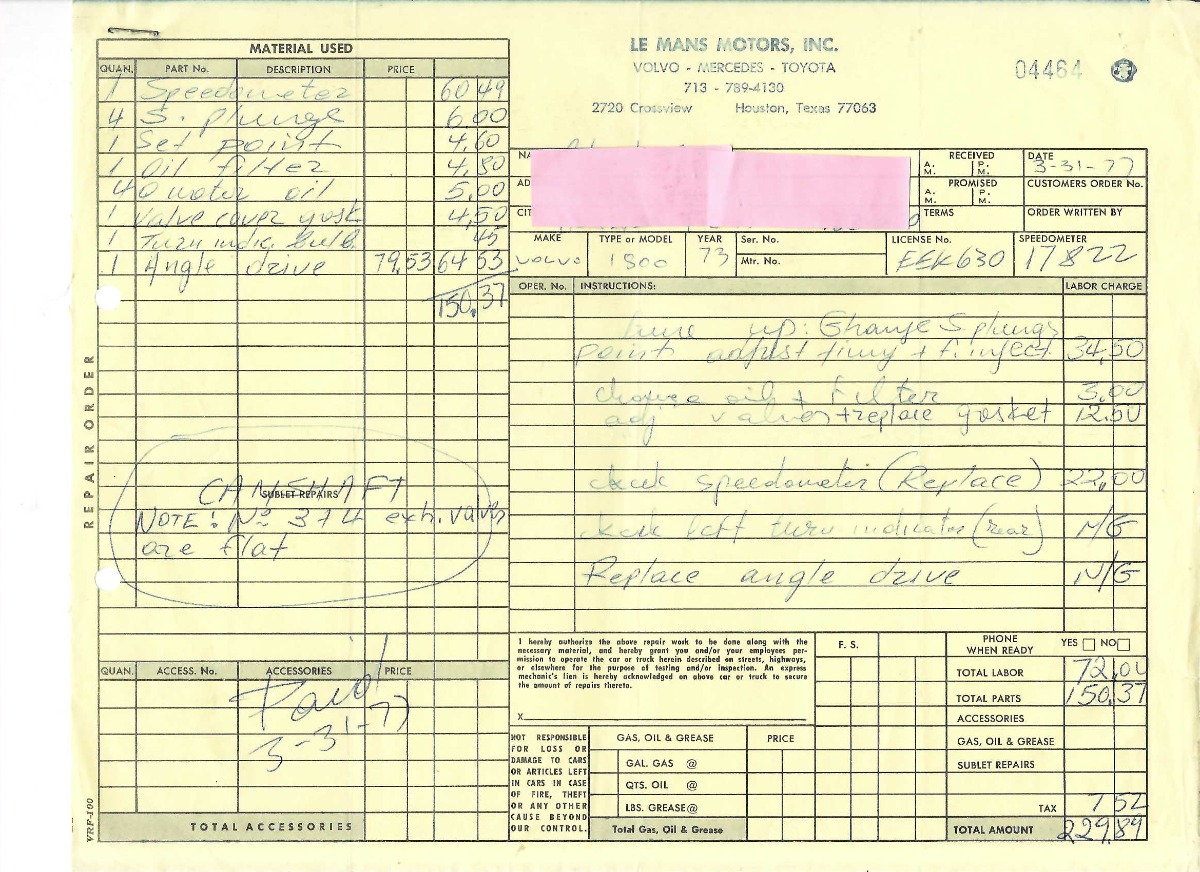 MATERIAL USED
QUAN. PART No. DESCRIPTION PRICE
1 Speedometer 60 49
4 S. plunge 6.00
1 Set point 4,60
1 Oil filter 4,80
4 Q motor oil 5,00
1 Valve cover gask. 4,50
1 Turn indic bulb 45
1 Angle drive 79,53 64 53
150,37
REPAIR ORDER
SUBLET REPAIRS
CAMSHAFT
NOTE: No 3+4 exh. valves
are flat
QUAN. ACCESS. No. ACCESSORIES PRICE
Paid
3-31-77
TOTAL ACCESSORIES
VRF-100
LE MANS MOTORS, INC.
VOLVO - MERCEDES - TOYOTA
713 - 789-4130
2720 Crossview Houston, Texas 77063
04464
NA
AD
CIT
RECEIVED
A. M. P. M.
PROMISED
A. M. P. M.
TERMS
DATE
3-31-77
CUSTOMERS ORDER No.
ORDER WRITTEN BY
MAKE
volvo
TYPE or MODEL
1800
YEAR
73
Ser. No.
Mtr. No.
LICENSE No.
EEK630
SPEEDOMETER
17822
OPER. No. INSTRUCTIONS: LABOR CHARGE
tune up: Change S. plungs
point adjust timy + f. inject. 34,50
change oil + Filter 3,00
adj valves + replace gosket 12.50
check speedometer (Replace) 22,00
check left turn indicator (rear) N/G
Replace angle drive N/G
I hereby authorize the above repair work to be done along with the
necessary material, and hereby grant you and/or your employees per-
mission to operate the car or truck herein described on streets, highways,
or elsewhere for the purpose of testing and/or inspection. An express
mechanic's lien is hereby acknowledged on above car or truck to secure
the amount of repairs thereto.
X
F. S.
PHONE
WHEN READY YES NO
TOTAL LABOR 72,00
TOTAL PARTS 150,37
ACCESSORIES
GAS, OIL & GREASE
SUBLET REPAIRS
TAX 7 52
TOTAL AMOUNT 229,89
NOT RESPONSIBLE
FOR LOSS OR
DAMAGE TO CARS
OR ARTICLES LEFT
IN CARS IN CASE
OF FIRE, THEFT
OR ANY OTHER
CAUSE BEYOND
OUR CONTROL.
GAS, OIL & GREASE PRICE
GAL. GAS @
QTS. OIL @
LBS. GREASE @
Total Gas, Oil & Grease